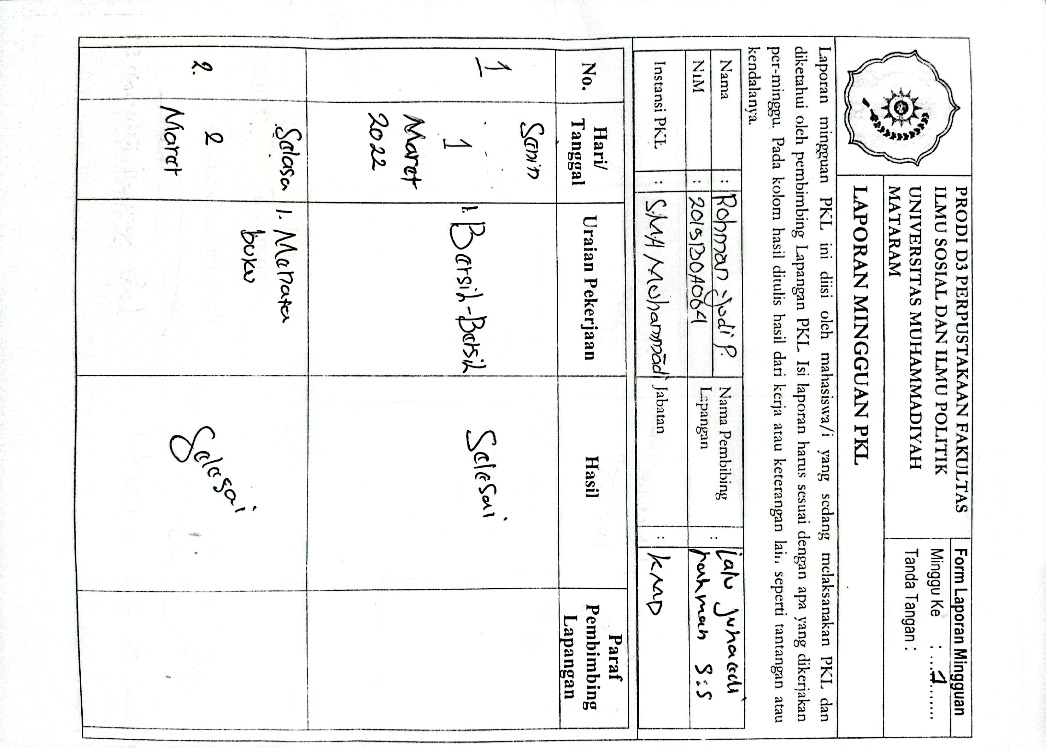 PRODI D3 PERPUSTAKAAN FAKULTAS
ILMU SOSIAL DAN ILMU POLITIK
UNIVERSITAS MUHAMMADIYAH
MATARAM
Form Laporan Mingguan
Minggu Ke : ...1.......
Tanda Tangan :
LAPORAN MINGGUAN PKL
Laporan mingguan PKL ini diisi oleh mahasiswa/i yang sedang melaksanakan PKL dan
diketahui oleh pembimbing Lapangan PKL. Isi laporan harus sesuai dengan apa yang dikerjakan
per-minggu. Pada kolom hasil ditulis hasil dari kerja atau keterangan lain seperti tantangan atau
kendalanya.
Nama : Rohman Jodi P.
NIM : 2019B0A064
Instansi PKL : SMA Muhammadi
Nama Pembibing
Lapangan : lalu Junaedi
rahman S.S
Jabatan : KMD
No. Hari/ Tanggal Uraian Pekerjaan Hasil Paraf Pembimbing Lapangan
1 Senin
1
Maret
2022
1. Bersih-Bersih
Selesai
2. Selasa
2
Maret
1. Menata
buku
Selesai